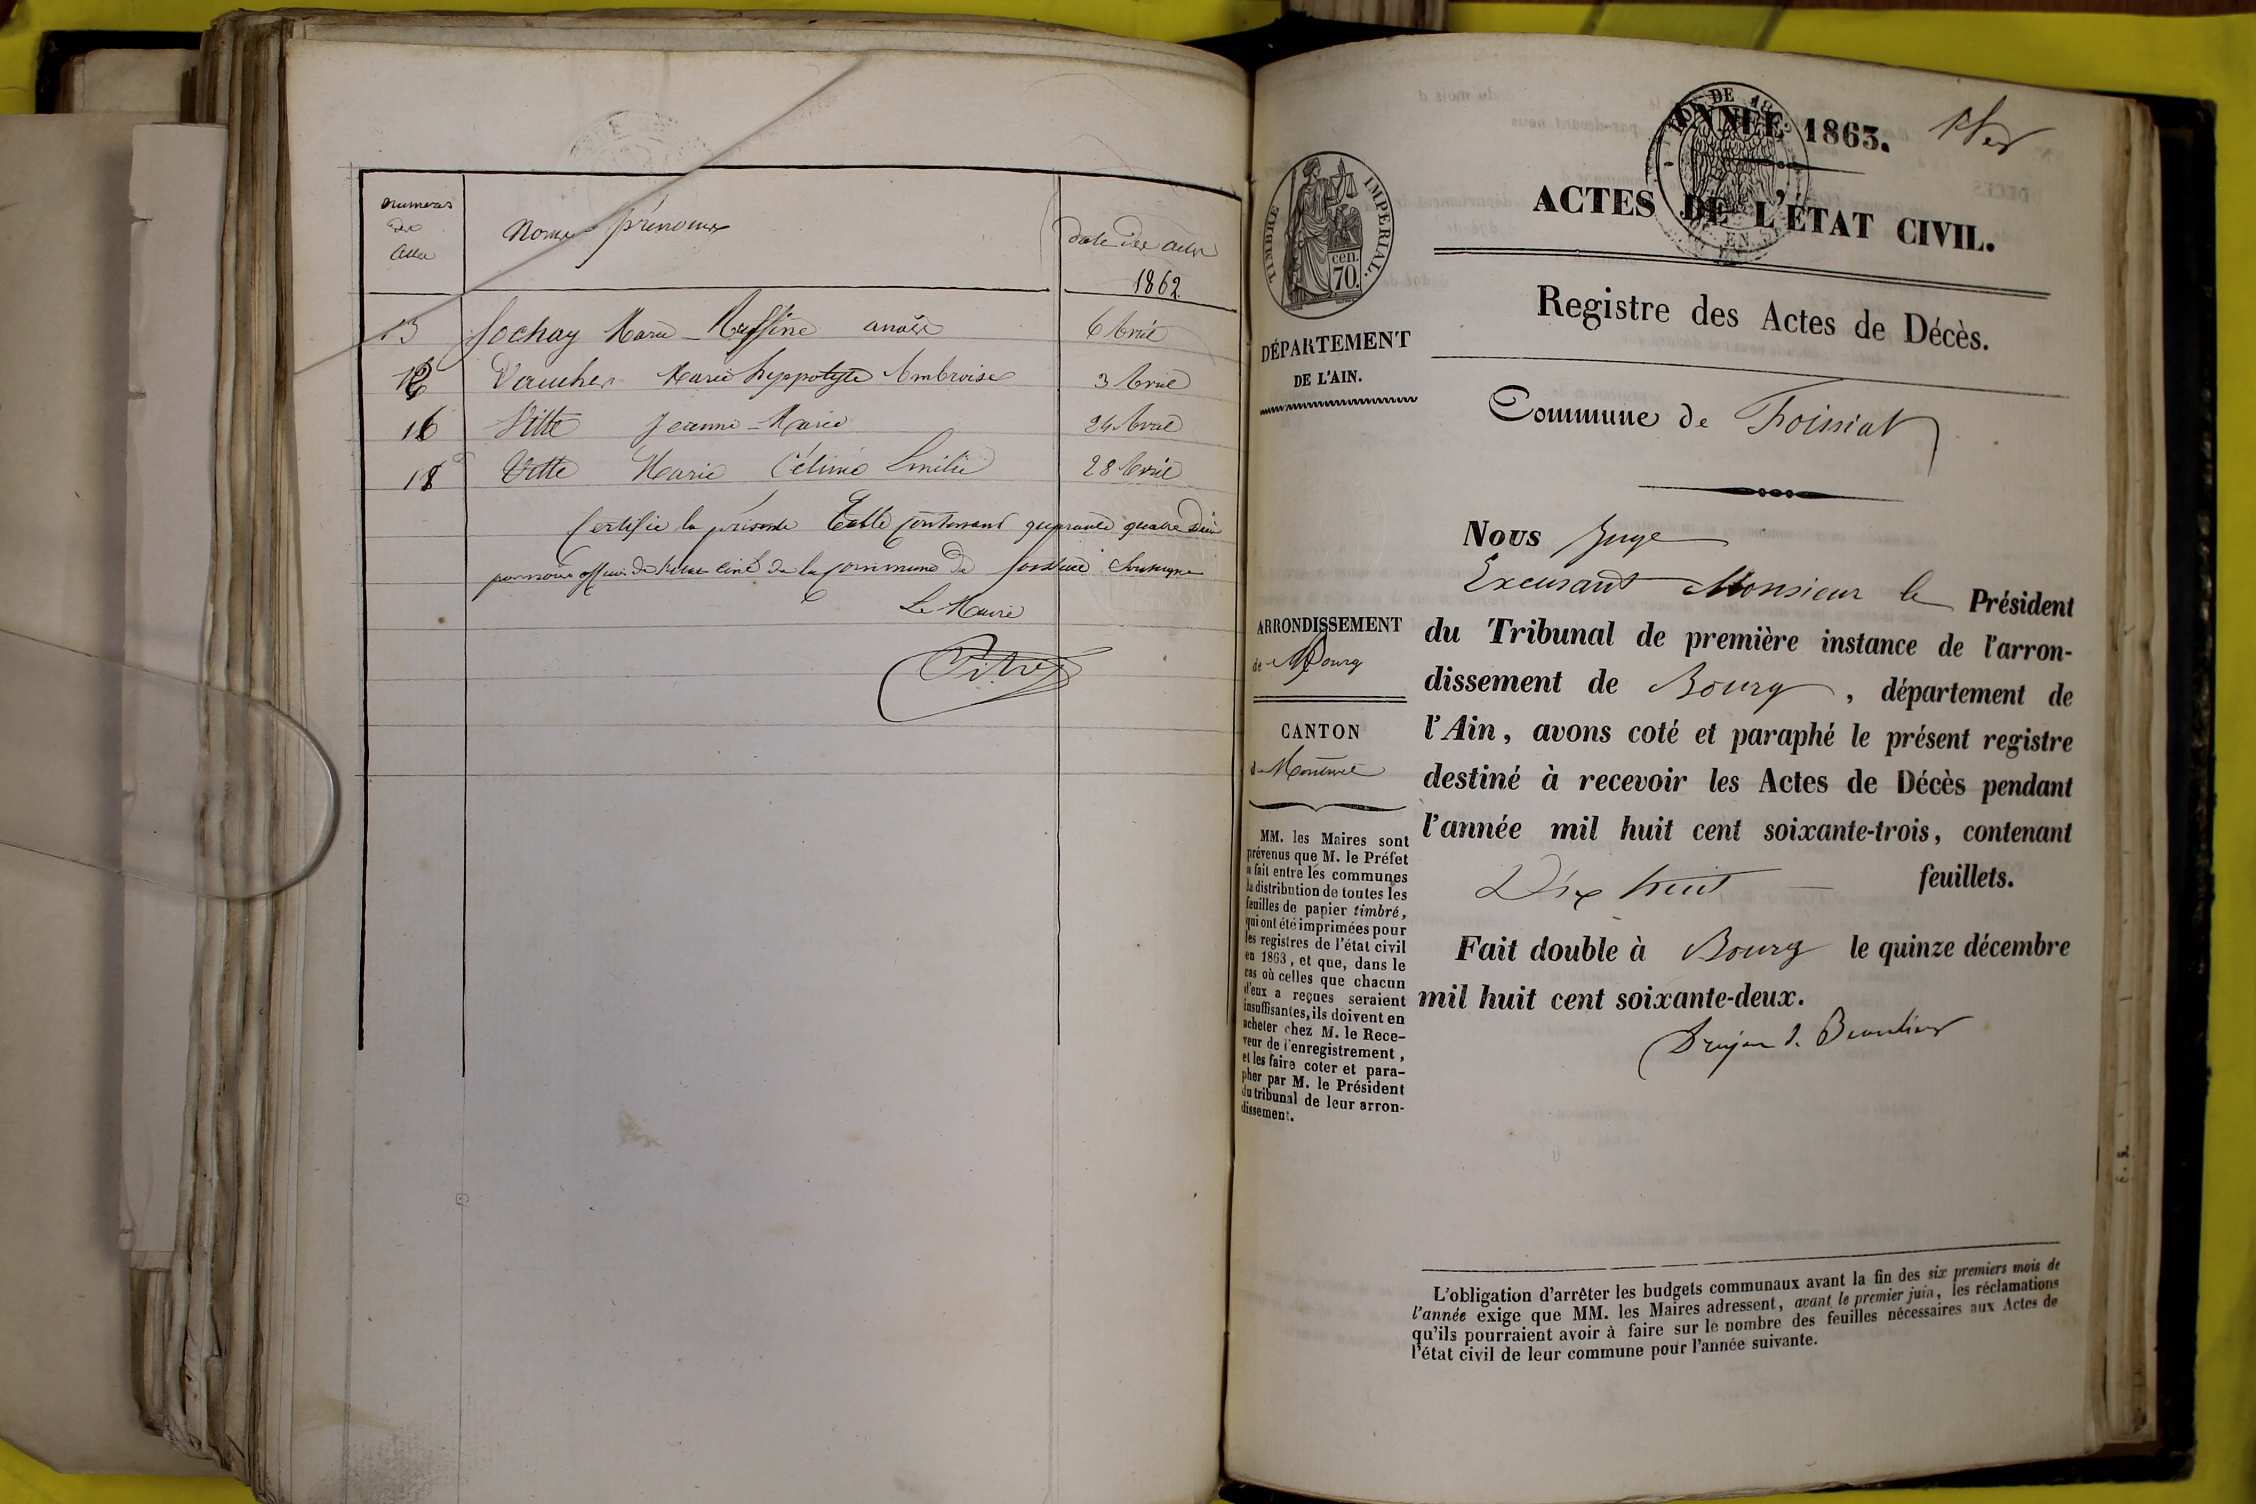 numeros
des
actes
Noms prénoms
date des actes
1862
13 Sochay Marie - Ruffine anaïse 6 Avril
12 Vaucher Marie hyppolyte Ambroise 3 Avril
16 Vitte Jeanne - Marie 24 Avril
18 Vitte Marie Célimie Emilie 28 Avril
Certifié la présente Table contenant quarante quatre
par nous officier de l'état civil de la commune de soussigné
Le Maire
ANNÉE 1863.
1er
ACTES DE L'ÉTAT CIVIL.
TIMBRE IMPÉRIAL.
cen.
70.
Registre des Actes de Décès.
DÉPARTEMENT
DE L'AIN.
Commune de Foissiat
Nous Juge
Excusant Monsieur le Président
du Tribunal de première instance de l'arron-
dissement de Bourg, département de
l'Ain, avons coté et paraphé le présent registre
destiné à recevoir les Actes de Décès pendant
l'année mil huit cent soixante-trois, contenant
Dix huit feuillets.
Fait double à Bourg le quinze décembre
mil huit cent soixante-deux.
Drujon de Beaulieu
ARRONDISSEMENT
de Bourg
CANTON
de Montrevel
MM. les Maires sont
prévenus que M. le Préfet
a fait entre les communes
la distribution de toutes les
feuilles de papier timbré,
qui ont été imprimées pour
les registres de l'état civil
en 1863, et que, dans le
cas où celles que chacun
d'eux a reçues seraient
insuffisantes, ils doivent en
acheter chez M. le Rece-
veur de l'enregistrement,
et les faire coter et para-
pher par M. le Président
du tribunal de leur arron-
dissement.
L'obligation d'arrêter les budgets communaux avant la fin des six premiers mois de
l'année exige que MM. les Maires adressent, avant le premier juin, les réclamations
qu'ils pourraient avoir à faire sur le nombre des feuilles nécessaires aux Actes de
l'état civil de leur commune pour l'année suivante.